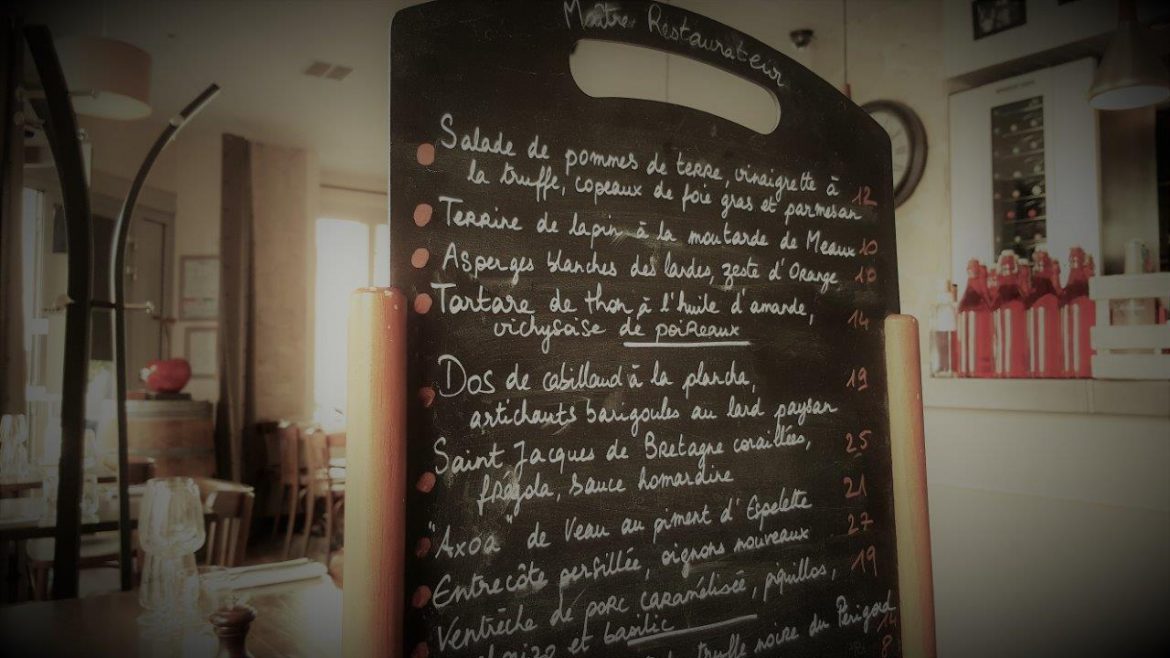 Maître Restaurateur
Salade de pommes de terre, vinaigrette à
la truffe, copeaux de foie gras et parmesan 12
Terrine de lapin à la moutarde de Meaux 10
Asperges blanches des landes, zeste d'Orange 10
Tartare de thon à l'huile d'amande,
vichysoise de poireaux 14
Dos de cabillaud à la plancha, 19
artichauts barigoules au lard paysan
Saint Jacques de Bretagne coraillées, 25
frégola, sauce homardine
"Axoa" de Veau au piment d'Espelette 21
Entrecôte persillée, oignons nouveaux 27
Ventrèche de porc caramélisée, piquillos, 19
et basilic
truffe noire du Périgord 14
8